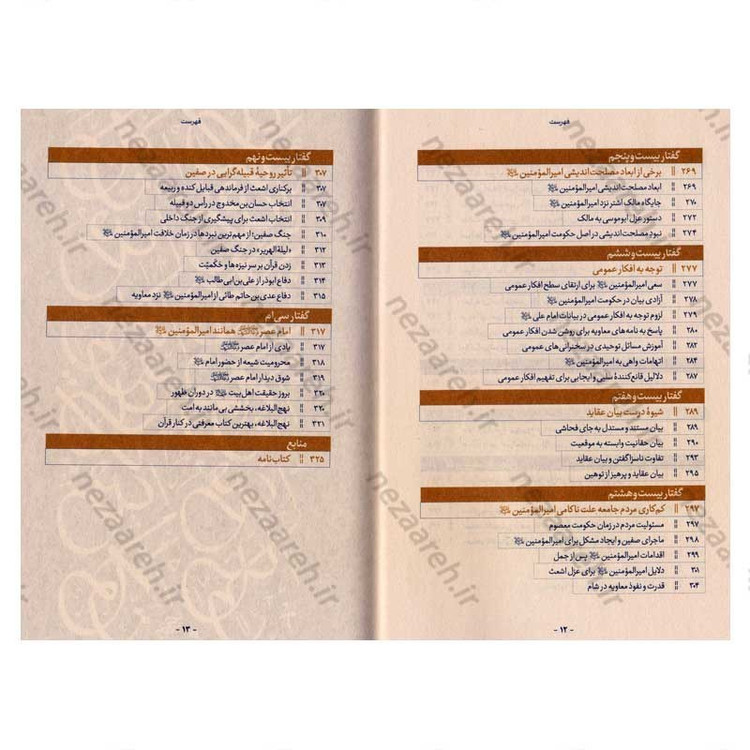 فهرست
گفتار بیست و پنجم
برخی از ابعاد مصلحت اندیشی امیرالمؤمنین ۲۶۹
ابعاد مصلحت اندیشی امیرالمؤمنین ۲۶۹
جایگاه مالک اشتر نزد امیرالمؤمنین ۲۷۰
دستور عزل ابوموسی به مالک ۲۷۲
نبودِ مصلحت‌اندیشی در اصل حکومت امیرالمؤمنین ۲۷۴
گفتار بیست و ششم
توجه به افکار عمومی ۲۷۷
سعی امیرالمؤمنین برای ارتقای سطح افکار عمومی ۲۷۷
آزادی بیان در حکومت امیرالمؤمنین ۲۷۸
لزوم توجه به افکار عمومی در بیانات امام علی ۲۷۹
پاسخ به نامه های معاویه برای روشن شدن افکار عمومی ۲۸۰
آموزش مسائل توحیدی در سخنرانی‌های عمومی ۲۸۳
اتهامات واهی به امیرالمؤمنین ۲۸۴
دلایل قانع‌کنندۀ سلبی و ایجابی برای تفهیم افکار عمومی ۲۸۷
گفتار بیست و هفتم
شیوۀ درست بیان عقاید ۲۸۹
بیان مستند و مستدل به جای فحاشی ۲۸۹
بیان حقانیت وابسته به موقعیت ۲۹۰
تفاوت ناسزا گفتن و بیان عقاید ۲۹۳
بیان عقاید و پرهیز از توهین ۲۹۵
گفتار بیست و هشتم
کم‌کاری مردم جامعه علت ناکامی امیرالمؤمنین ۲۹۷
مسئولیت مردم در زمان حکومت معصوم ۲۹۷
ماجرای صفین و ایجاد مشکل برای امیرالمؤمنین ۲۹۸
اقدامات امیرالمؤمنین پس از جمل ۲۹۹
دلایل امیرالمؤمنین برای عزل اشعث ۳۰۱
قدرت و نفوذ معاویه در شام ۳۰۴
- ۱۲ -
فهرست
گفتار بیست و نهم
تأثیر روحیۀ قبیله‌گرایی در صفین ۳۰۷
برکناری اشعث از فرماندهی قبایل کنده و ربیعه ۳۰۷
انتخاب حسان بن مخدوج در رأس دو قبیله ۳۰۷
انتخاب اشعث برای پیشگیری از جنگ داخلی ۳۰۹
جنگ صفین؛ از مهم‌ترین نبردها در زمان خلافت امیرالمؤمنین ۳۱۰
«لیلة الهریر» در جنگ صفین ۳۱۲
زدن قرآن بر سر نیزه‌ها و حَکَمیّت ۳۱۳
دفاع ابوذر از علی بن ابی طالب ۳۱۴
دفاع عدی بن حاتم طائی از امیرالمؤمنین نزد معاویه ۳۱۵
گفتار سی اُم
امام عصر همانند امیرالمؤمنین ۳۱۷
یادی از امام عصر ۳۱۷
محرومیت شیعه از حضور امام ۳۱۸
شوق دیدار امام عصر ۳۱۹
بروز حقیقت اهل بیت در دوران ظهور ۳۲۰
نهج البلاغه، بخششی بی مانند به امت ۳۲۰
نهج البلاغه، بهترین کتاب معرفتی در کنار قرآن ۳۲۱
منابع
کتاب‌نامه ۳۲۵
- ۱۳ -
nezaareh.ir
nezaareh.ir
nezaareh.ir
nezaareh.ir
nezaareh.ir
nezaareh.ir